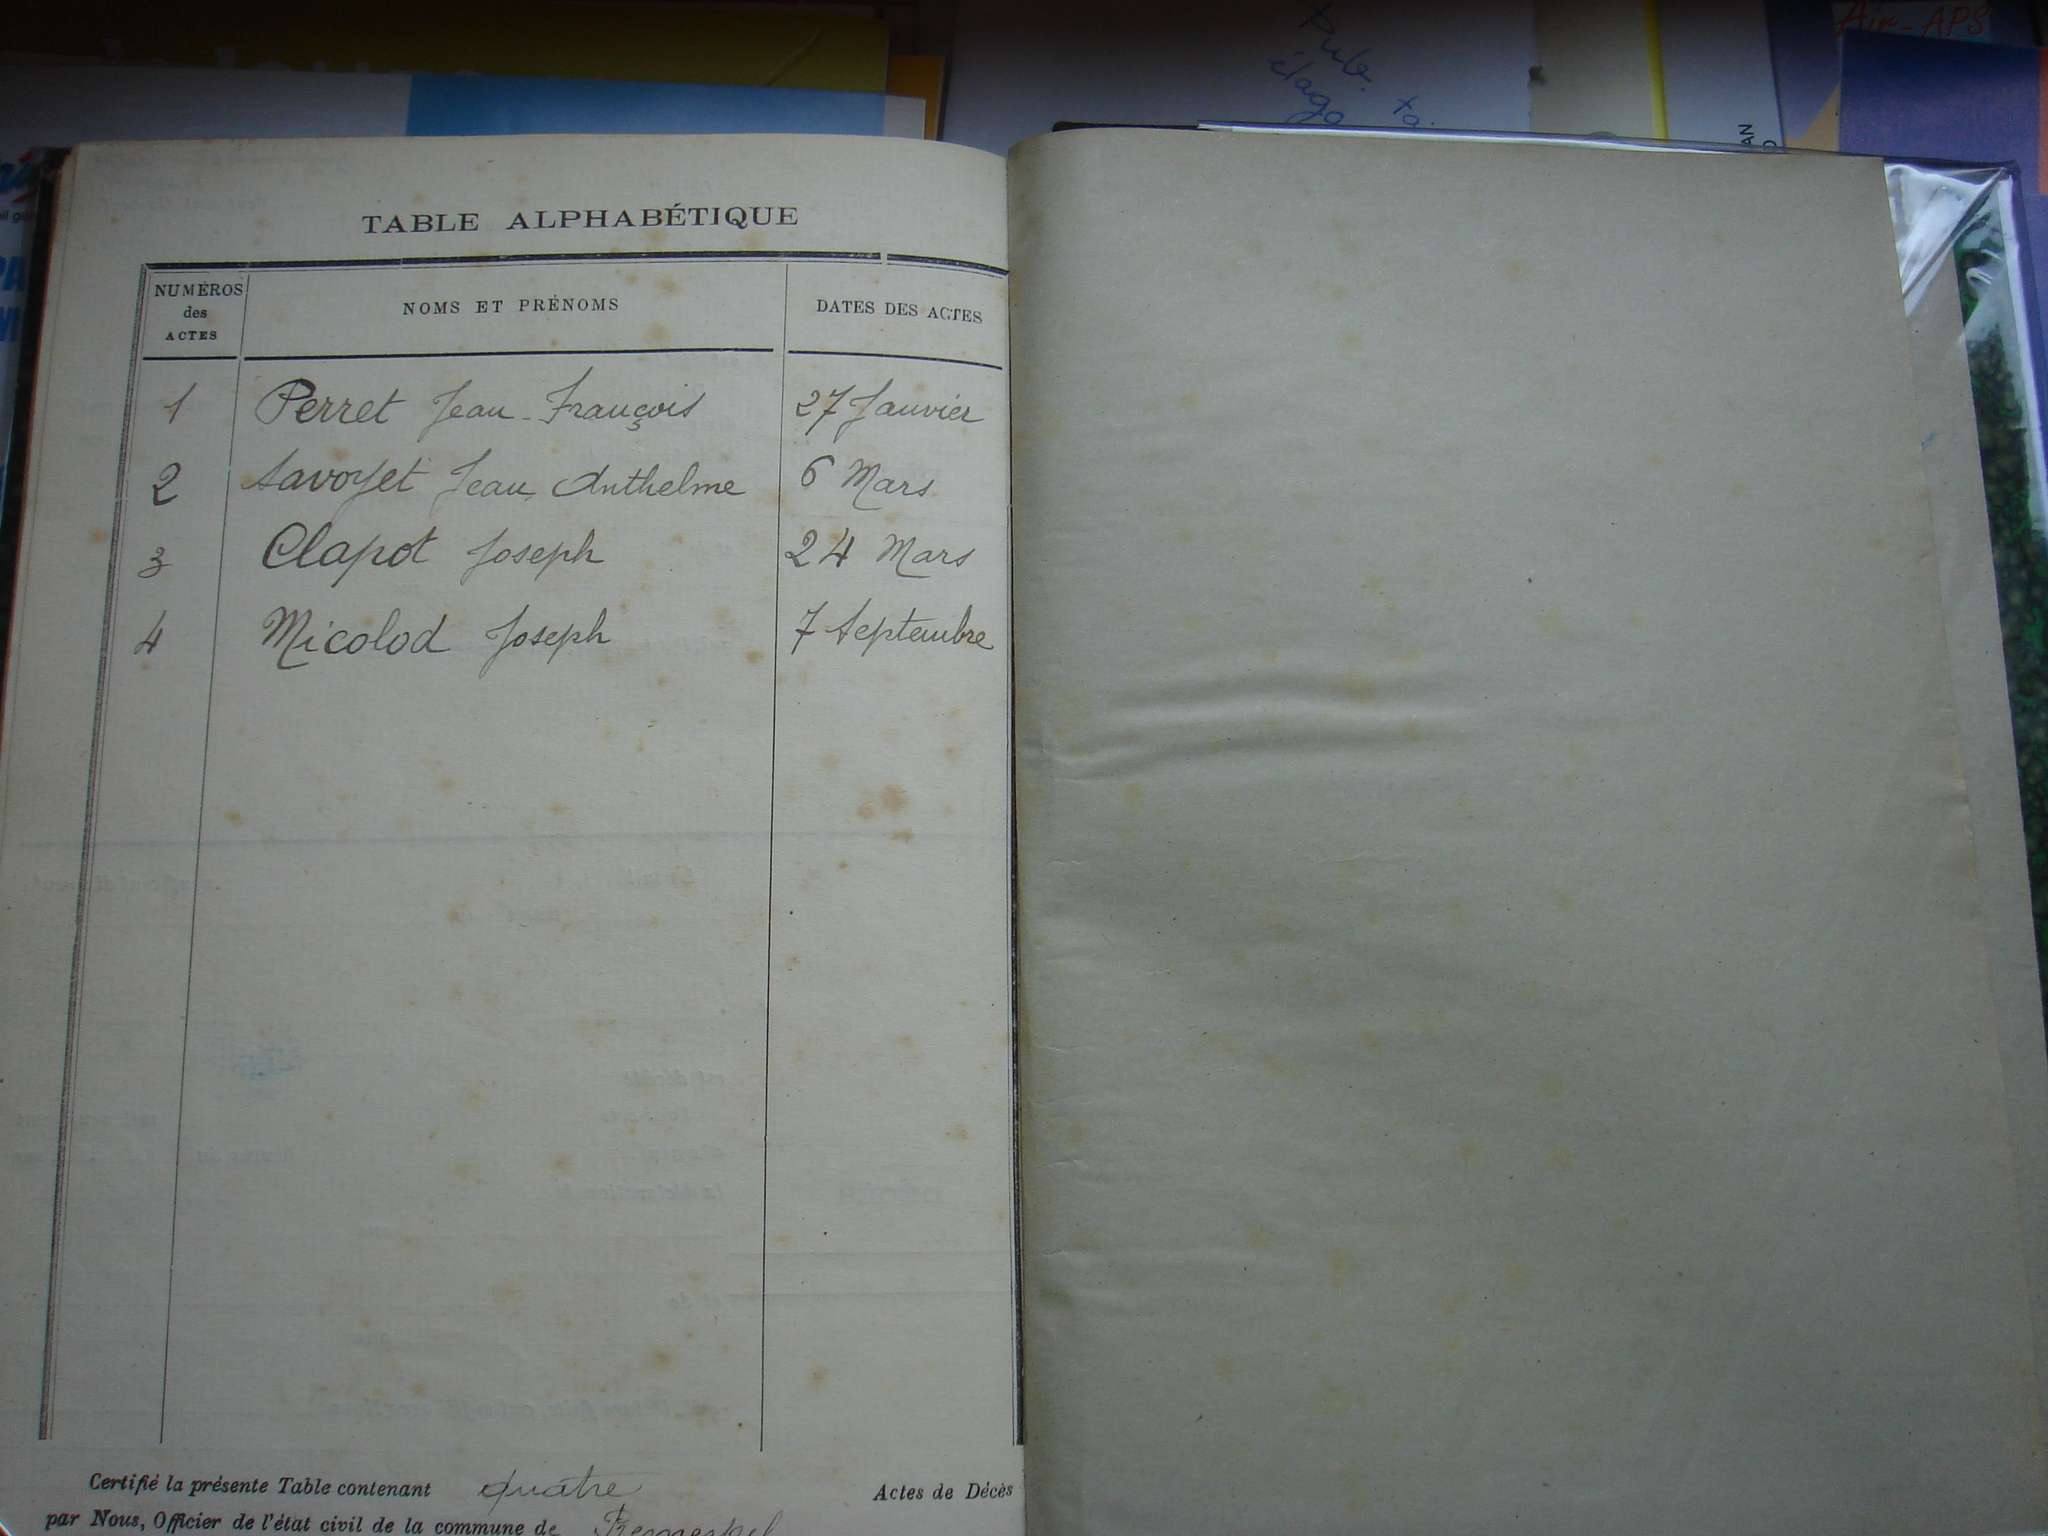 Air-APS
TABLE ALPHABÉTIQUE
NUMÉROS des ACTES
NOMS ET PRÉNOMS
DATES DES ACTES
1 Perret Jean-François 27 Janvier
2 Savoyet Jean Anthelme 6 Mars
3 Clapot Joseph 24 Mars
4 Micolod Joseph 7 Septembre
Certifié la présente Table contenant quatre Actes de Décès
par Nous, Officier de l'état civil de la commune de